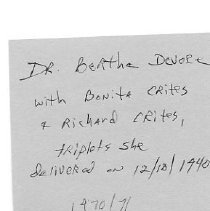 DR. Bertha DeVore
with Bonita Crites
& Richard Crites,
triplets she
delivered on 12/18/1940
1970/71